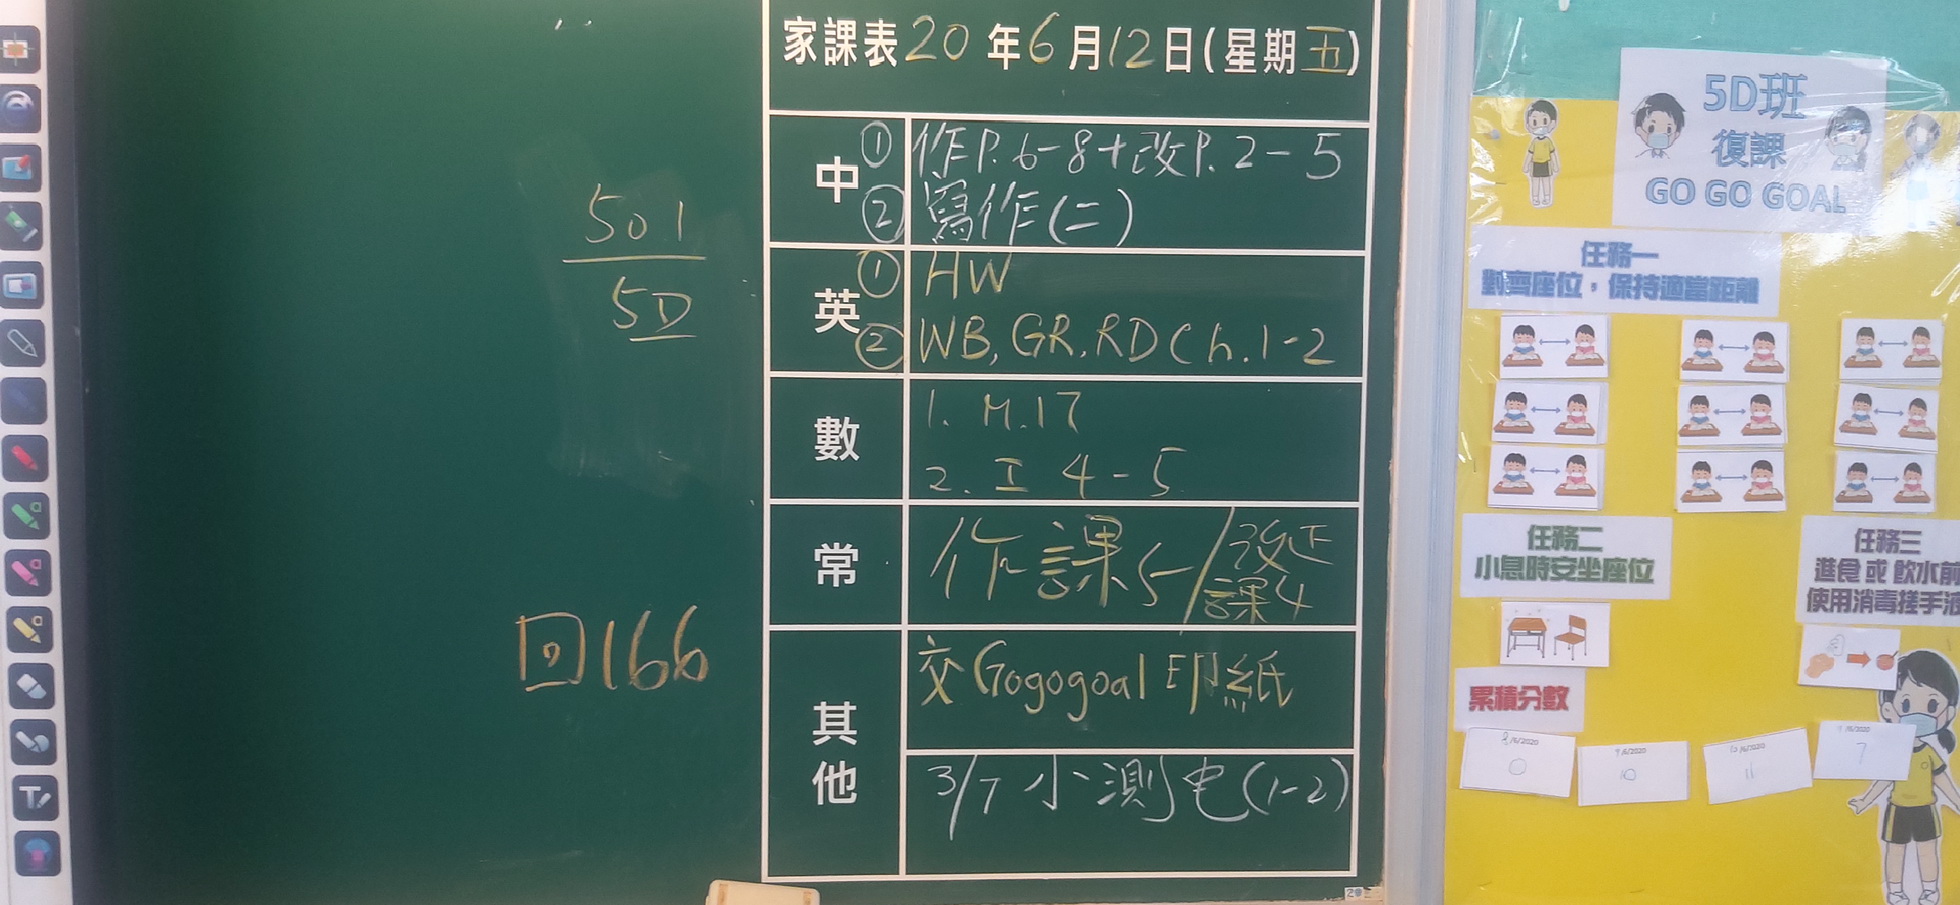 家課表20年6月12日(星期五)
中
① 作P.6-8+改P.2-5
② 寫作(二)
英
① HW
② WB, GR, RD Ch.1-2
數
1. M.17
2. 工 4-5
常
作課5/改正
課4
其他
交Gogogoal印紙
3/7小測电(1-2)
501
5D
回166
5D班
復課
GO GO GOAL
任務一
對齊座位，保持適當距離
任務二
小息時安坐座位
任務三
進食 或 飲水前
使用消毒搓手液
累積分數
8/6/2020
0
9/6/2020
10
10/6/2020
11
7